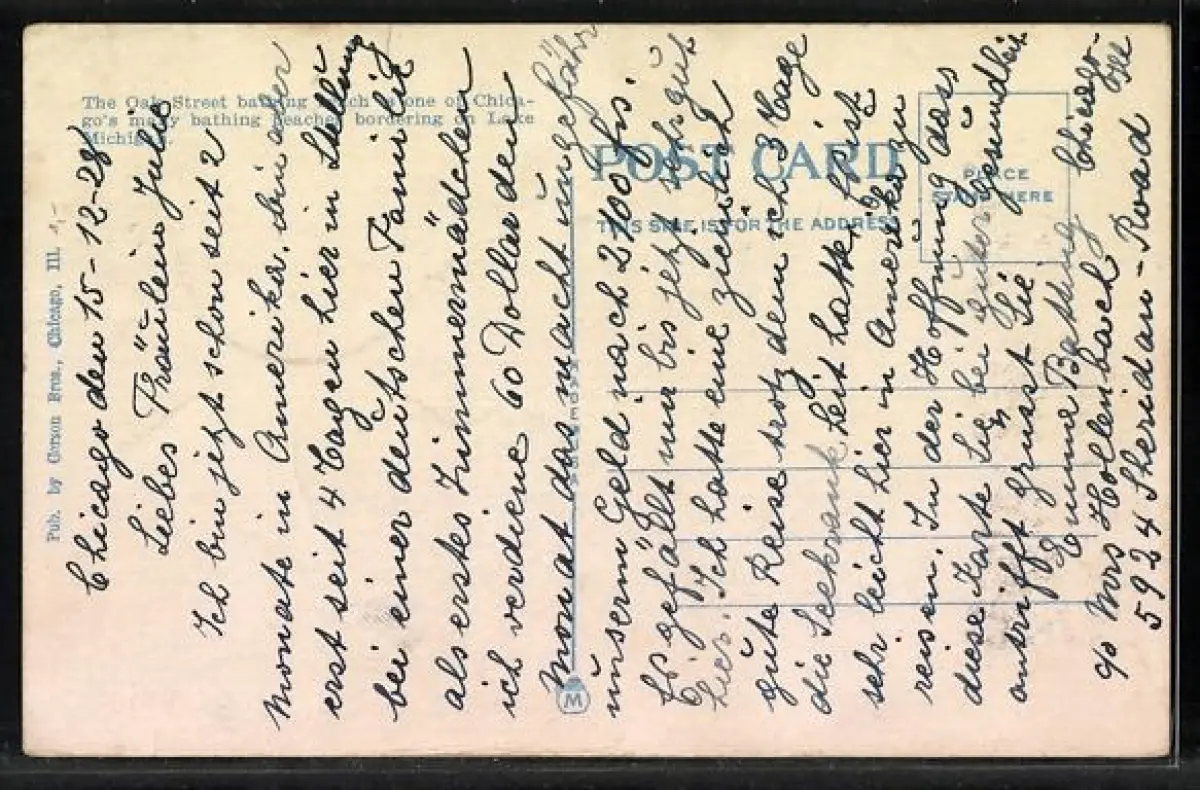 The Oak Street bathing beach is one of Chica-
go's many bathing beaches bordering on Lake
Michigan.
Pub. by Gerson Bros., Chicago, Ill.
POST CARD
THIS SIDE IS FOR THE ADDRESS
PLACE
STAMP HERE
M
Chicago den 15-12-28
Liebes Fräulein Julie
Ich bin jetzt schon seit 2
Monate in Amerika. bin aber
erst seit 4 Tagen hier in Stellung
bei einer deutschen Familie
als erstes Zimmermädchen
ich verdiene 60 Dollar den
Monat das macht ungefähr
unserm Geld nach 2100 frs.
Es gefällt mir bis jetz. sehr gut
hier. Ich hatte eine ziemlich
gute Reise trotz dem ich 3 Tage
die Seekrank heit hatte, Es ist
sehr leicht hier in Amerika zu
reisen. In der Hoffnung dass
diese Karte Sie bei guter Gesundheit
antrifft grüsst Sie
Emma Battung
c/o Mrs Hollenbach Chicago-
5924 Sheridan-Road Ill